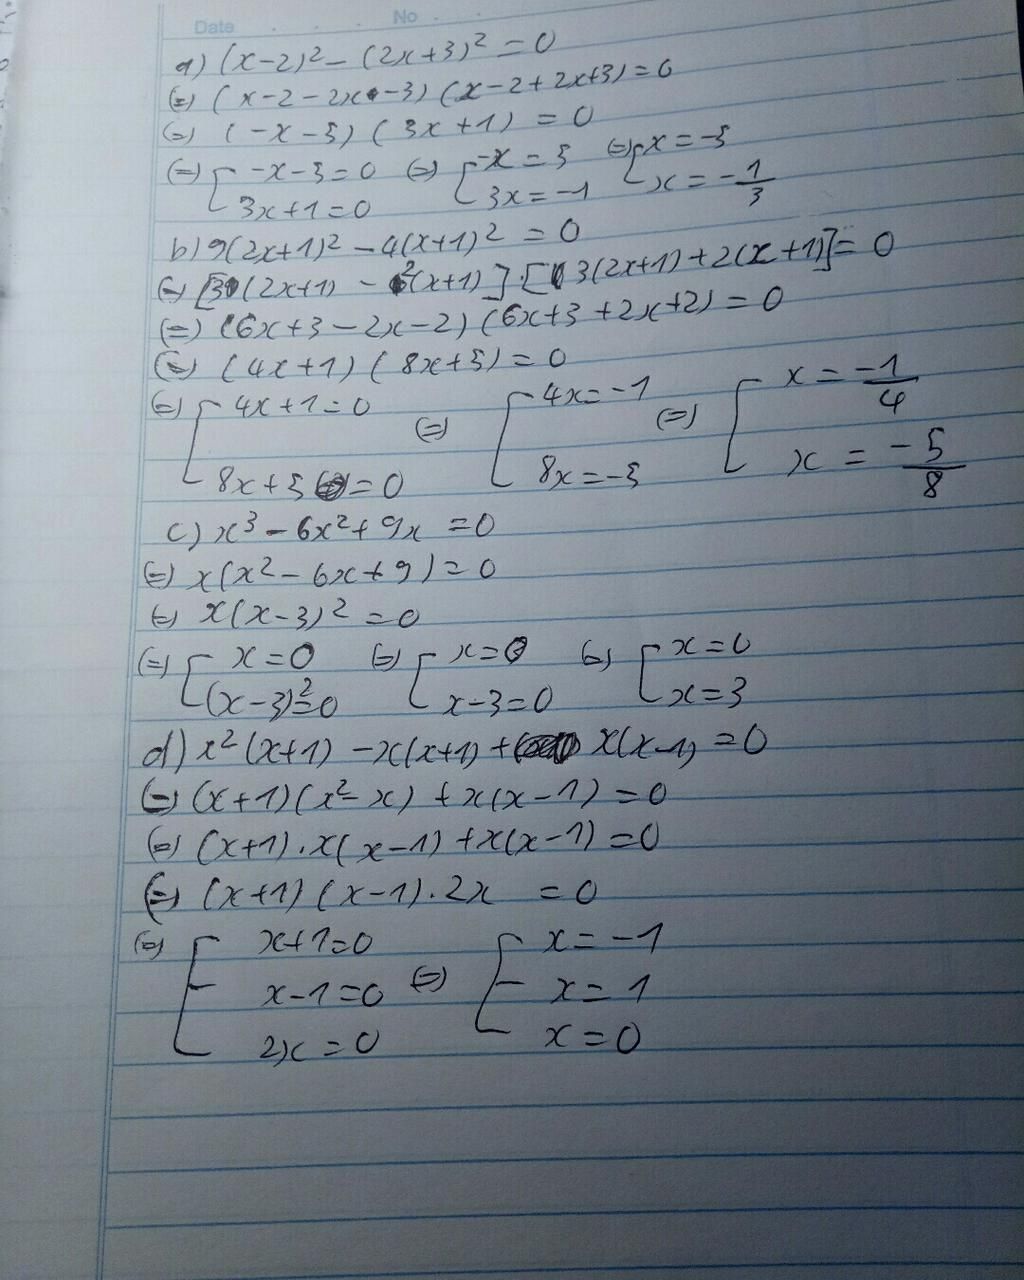 Date No
a) (x-2)² - (2x+3)² = 0
(=) (x-2-2x-3) (x-2+2x+3) = 0
(=) (-x-5) (3x+1) = 0
(=) [ -x-5=0 (=) [ -x = 5 (=) [ x = -5
3x+1=0 3x = -1 x = -1/3
b) 9(2x+1)² - 4(x+1)² = 0
(=) [3(2x+1) - 2(x+1)].[3(2x+1)+2(x+1)] = 0
(=) (6x+3-2x-2) (6x+3+2x+2) = 0
(=) (4x+1) (8x+5) = 0
(=) [ 4x+1=0 (=) [ 4x=-1 (=) [ x = -1/4
8x+5=0 8x=-5 x = -5/8
c) x³ - 6x² + 9x = 0
(=) x(x²-6x+9) = 0
(=) x(x-3)² = 0
(=) [ x=0 (=) [ x=0 (=) [ x=0
(x-3)²=0 x-3=0 x=3
d) x²(x+1) - x(x+1) + x(x-1) = 0
(=) (x+1)(x²-x) + x(x-1) = 0
(=) (x+1).x(x-1) + x(x-1) = 0
(=) (x+1) (x-1).2x = 0
(=) [ x+1=0 (=) [ x=-1
x-1=0 x=1
2x=0 x=0